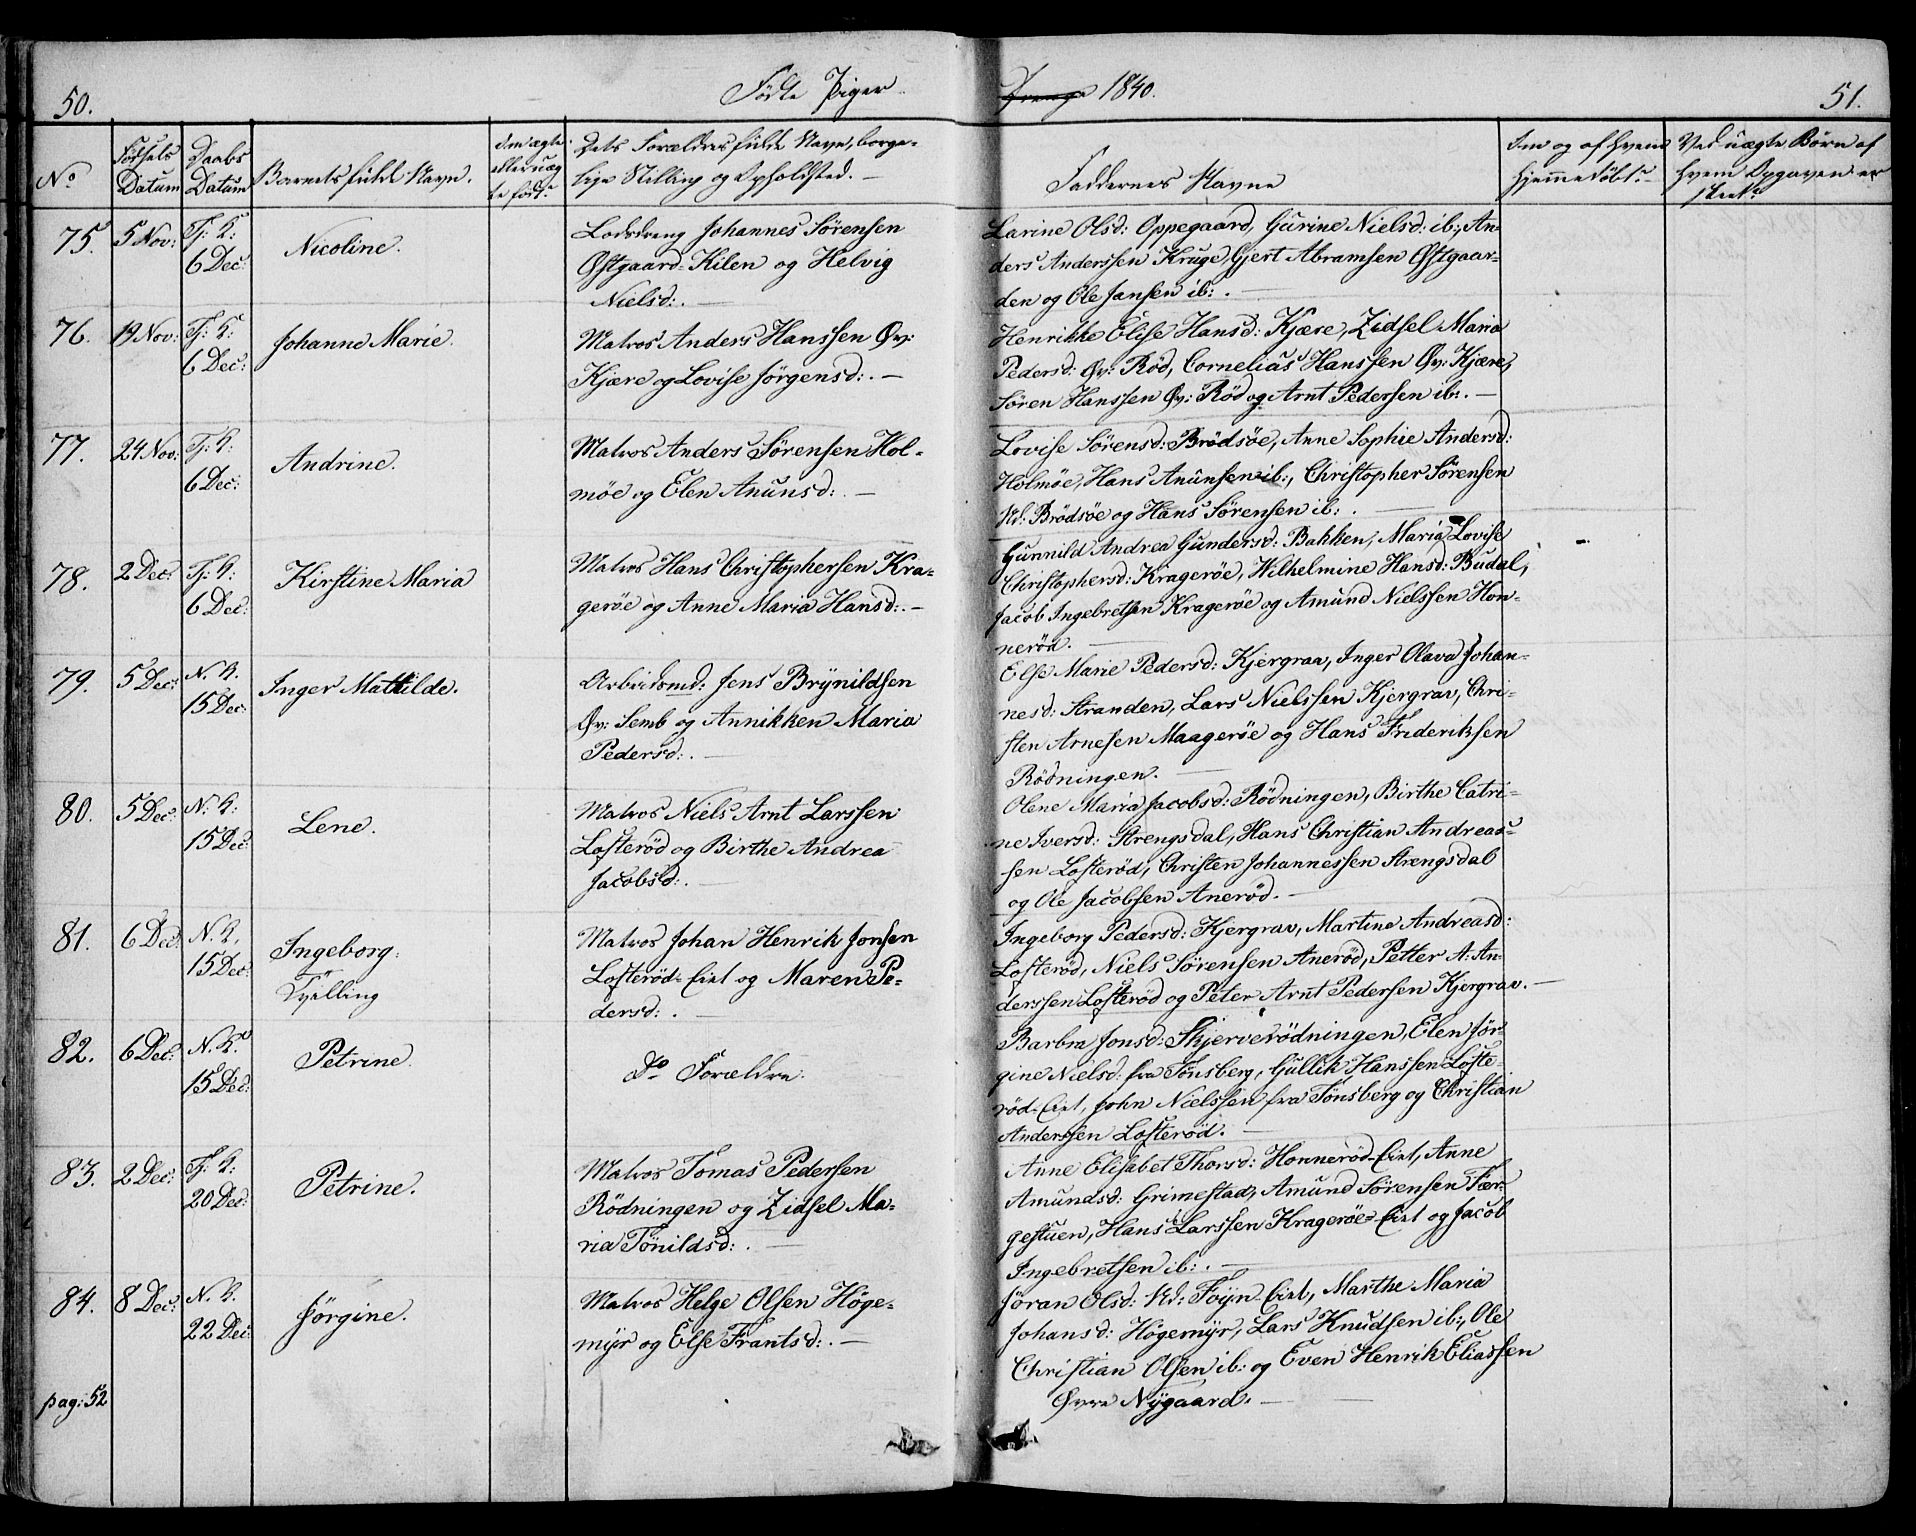 50.
Fødte Piger
Drenge 1840.
51.
No
Fødsels Datum
Daabs Datum
Barnets fulde Navn.
Om ægte eller uægte født.
Dets Forældres fulde Navn, borgerlige Stilling og Opholdsted. —
Faddernes Navne
Om og af hvem hjemmedøbt.
Ved uægte Børn af hvem Opgaven er skeet.
75. 5 Nov: Tj: K: 6 Dec: Nicoline.
Lodsdreng Johannes Sørensen
Østgaard-Kilen og Helvig
Nielsd:. —
Larine Olsd: Oppegaard, Gurine Nielsd: ib:, An-
ders Anderssen Kruge, Gjert Abramsen Østgaar-
den og Ole Jansen ib:. —
76. 19 Nov: Tj: K: 6 Dec: Johanne Marie.
Matros Anders Hanssen Øv:
Kjære og Lovise Jørgensd:. —
Henrikke Elise Hansd: Kjære, Zidsel Maria
Pedersd: Øv: Rød, Cornelius Hanssen Øv: Kjære,
Søren Hanssen Øv: Rød og Arnt Pedersen ib:. —
77. 24 Nov: Tj: K: 6 Dec: Andrine.
Matros Anders Sørensen Hol-
møe og Elen Anunsd:. —
Lovise Sørensd: Brødsøe, Anne Sophie Andersd:
Holmøe, Hans Anunsen ib:, Christopher Sørensen
Nd: Brødsøe og Hans Sørensen ib:. —
78. 2 Dec: Tj: K: 6 Dec: Kirstine Maria
Matros Hans Christophersen Kra-
gerøe og Anne Maria Hansd:. —
Gunnild Andrea Gundersd: Bakken, Maria Lovise
Christophersd: Kragerøe, Wilhelmine Hansd: Budal,
Jacob Ingebretsen Kragerøe og Amund Nielssen Hon-
nerød. —
79. 5 Dec: N. K. 15 Dec: Inger Mathilde.
Arbeidsmd: Jens Brynildsen
Øv: Semb og Annikken Maria
Pedersd:. —
Else Marie Pedersd: Kjergrav, Inger Olava Johan-
nesd: Stranden, Lars Nielssen Kjergrav, Chri-
sten Arnesen Maagerøe og Hans Frederiksen
Rødningen. —
80. 5 Dec: N. K: 15 Dec: Lene.
Matros Niels Arnt Larssen
Lofterød og Birthe Andrea
Jacobsd:. —
Olene Maria Jacobsd: Rødningen, Birthe Catri-
ne Iversd: Strengsdal, Hans Christian Andreas-
sen Lofterød, Christen Johannessen Strengsdal
og Ole Jacobsen Anerød. —
81. 6 Dec: N. K. 15 Dec: Ingeborg.
Tvilling
Matros Johan Henrik Jonsen
Lofterød-Eiet og Maren Pe-
dersd:. —
Ingeborg Pedersd: Kjergrav, Martine Andreasd:
Lofterød, Niels Sørensen Anerød, Petter A: An-
derssen Lofterød og Peter Arnt Pedersen Kjergrav. —
82. 6 Dec: N. K. 15 Dec: Petrine.
Do Forældre.
Barbra Jonsd: Skjerverødningen, Elen Jør-
gine Nielsd: fra Tønsberg, Gullik Hanssen Lofte-
rød-Eiet, John Nielssen fra Tønsberg og Christian
Anderssen Lofterød. —
83. 2 Dec: Tj: K: 20 Dec: Petrine.
Matros Tomas Pedersen
Rødningen og Zidsel Ma-
ria Tønildsd:. —
Anne Elisabet Thorsd: Honnerød-Eiet, Anne
Amundsd: Grimestad, Amund Sørensen Fær-
gestuen, Hans Larssen Kragerøe-Eiet og Jacob
Ingebretsen ib:. —
84. 8 Dec: N. K. 22 Dec: Jørgine.
Matros Helge Olsen Høge-
myr og Else Frantsd:. —
Jøran Olsd: Nd: Foyn-Eiet, Marthe Maria
Johansd: Høgemyr, Lars Knudsen ib:, Ole
Christian Olsen ib: og Even Henrik Eliassen
Øvre Nygaard. —
pag: 52